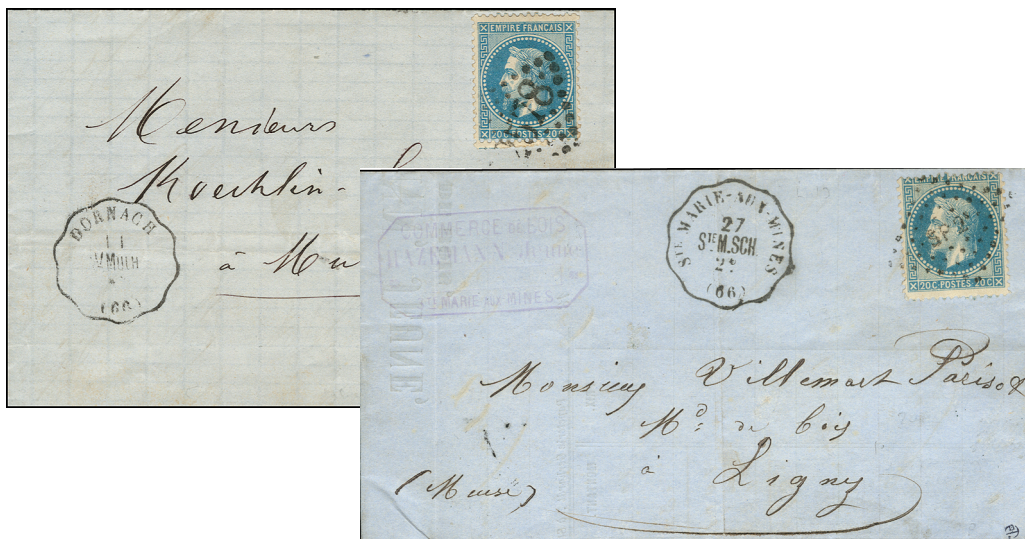 EMPIRE FRANÇAIS
20 C POSTES 20 C
Messieurs
Koechlin-
à Mu
DORNACH
11
MULH
(66)
COMMERCE DE BOIS
STE MARIE AUX MINES
STE MARIE-AUX-MINES
27
STE M.SCH.
2°
(66)
EMPIRE FRANÇAIS
20 C POSTES 20 C
Monsieur Villemart Paris
Md. de bois
à
Ligny
(Meuse)